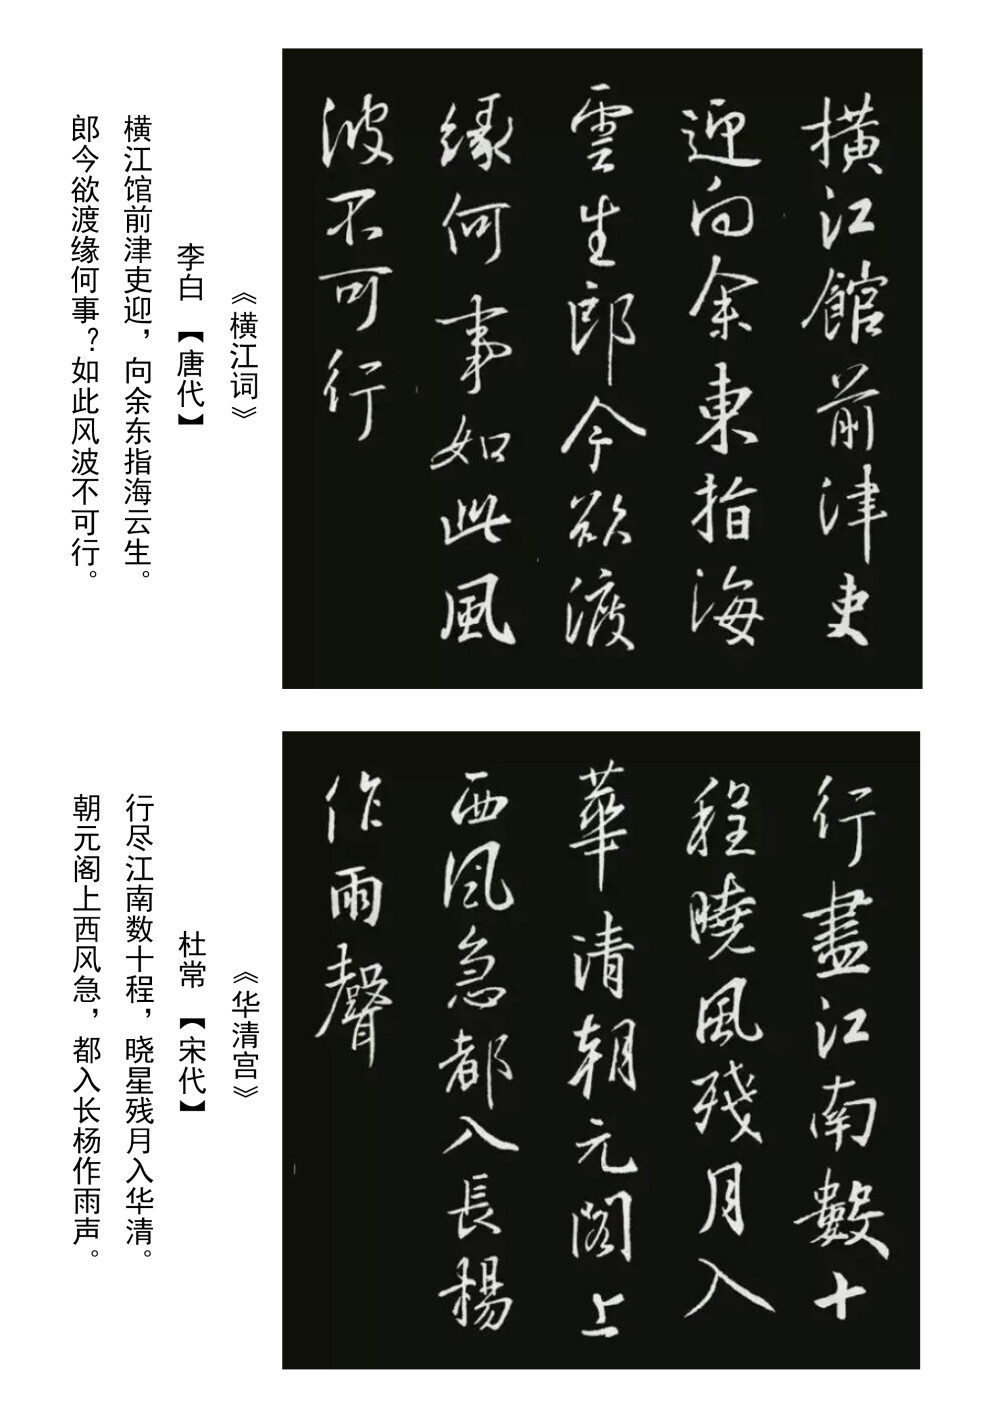 橫江館前津吏
迎向余東指海
雲生郎今欲渡
緣何事如此風
波不可行
《横江词》
李白 【唐代】
横江馆前津吏迎，向余东指海云生。
郎今欲渡缘何事？如此风波不可行。
行盡江南數十
程曉風殘月入
華清朝元閣上
西风急都入長楊
作雨聲
《华清宫》
杜常 【宋代】
行尽江南数十程，晓星残月入华清。
朝元阁上西风急，都入长杨作雨声。